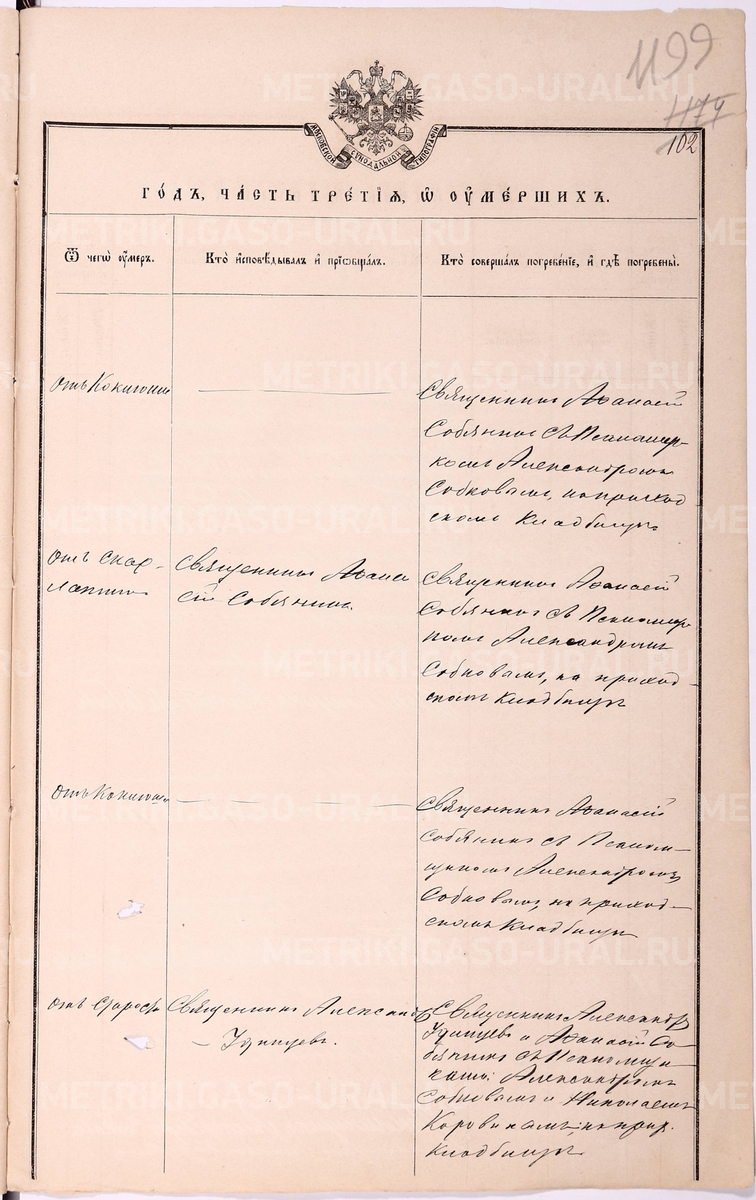 1199
1174
102
МОСКОВСКОЙ СѴНОДАЛЬНОЙ ТИПОГРАФІИ
ГО́ДЪ, ЧА́СТЬ ТРЕ́ТІЯ, Ѡ҆ ОУ҆МЕ́РШИХЪ.
Ѿ чегѡ̀ оу҆́меръ.
Кто̀ и҆сповѣ́дывалъ и҆ прїѡбща́лъ.
Кто̀ соверша́лъ погребе́нїе, и҆ гдѣ̀ погребены̀.
отъ Коклюши
Священникъ Аѳанасій
Собянинъ съ Псаломщи-
комъ Александромъ
Собковымъ, на приход
скомъ кладбищѣ
отъ скар-
латины
Священникъ Аѳана
сій Собянинъ.
Священникъ Аѳанасій
Собянинъ съ Псаломщи
комъ Александромъ
Собковымъ, на приход-
скомъ кладбищѣ
отъ Коклюши
Священникъ Аѳанасій
Собянинъ съ Псалом-
щикомъ Александромъ
Собковымъ, на приход-
скомъ кладбищѣ
отъ старости
Священникъ Александр
Священникъ Александръ
и Аѳанасій Со-
бянинъ съ Псаломщи-
ками: Александромъ
Собковымъ и Николаемъ
Коровинымъ, на прих.
кладбищѣ
METRIKI.GASO-URAL.RU